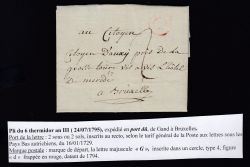 au Citoyen
Citoyen D'auxy près de la
grosse tour vis a vis L'hotel
de merode
a Bruxelles
Pli du 6 thermidor an III ( 24/07/1795), expédié en port dû, de Gand à Bruxelles.
Port de la lettre : 2 sous ou 2 sols, inscrits au recto, selon le tarif général de la Poste aux lettres sous les
Pays Bas autrichiens, du 16/01/1729.
Marque postale : marque de départ, la lettre majuscule « G », inscrite dans un cercle, type 4, figure
« d », frappée en rouge, datant de 1794.